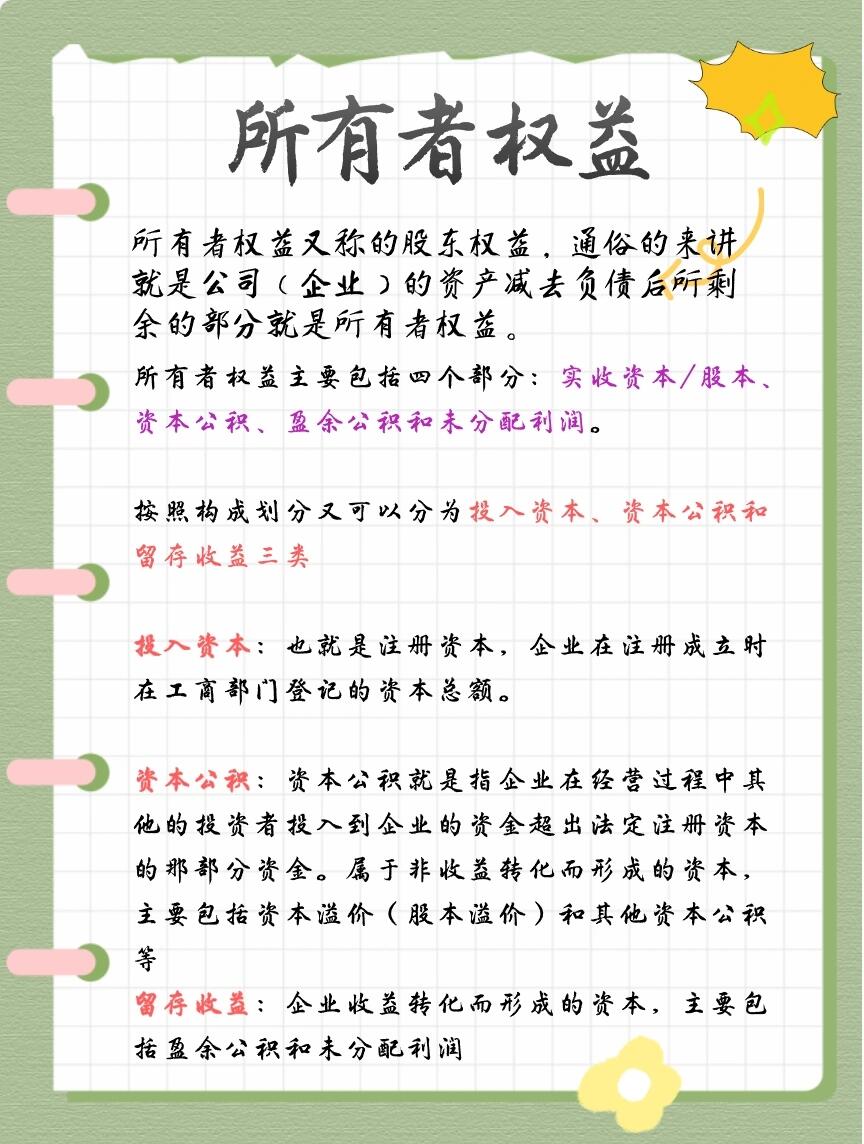 所有者权益
所有者权益又称的股东权益，通俗的来讲
就是公司（企业）的资产减去负债后所剩
余的部分就是所有者权益。
所有者权益主要包括四个部分：实收资本/股本、
资本公积、盈余公积和未分配利润。
按照构成划分又可以分为投入资本、资本公积和
留存收益三类
投入资本：也就是注册资本，企业在注册成立时
在工商部门登记的资本总额。
资本公积：资本公积就是指企业在经营过程中其
他的投资者投入到企业的资金超出法定注册资本
的那部分资金。属于非收益转化而形成的资本，
主要包括资本溢价（股本溢价）和其他资本公积
等
留存收益：企业收益转化而形成的资本，主要包
括盈余公积和未分配利润